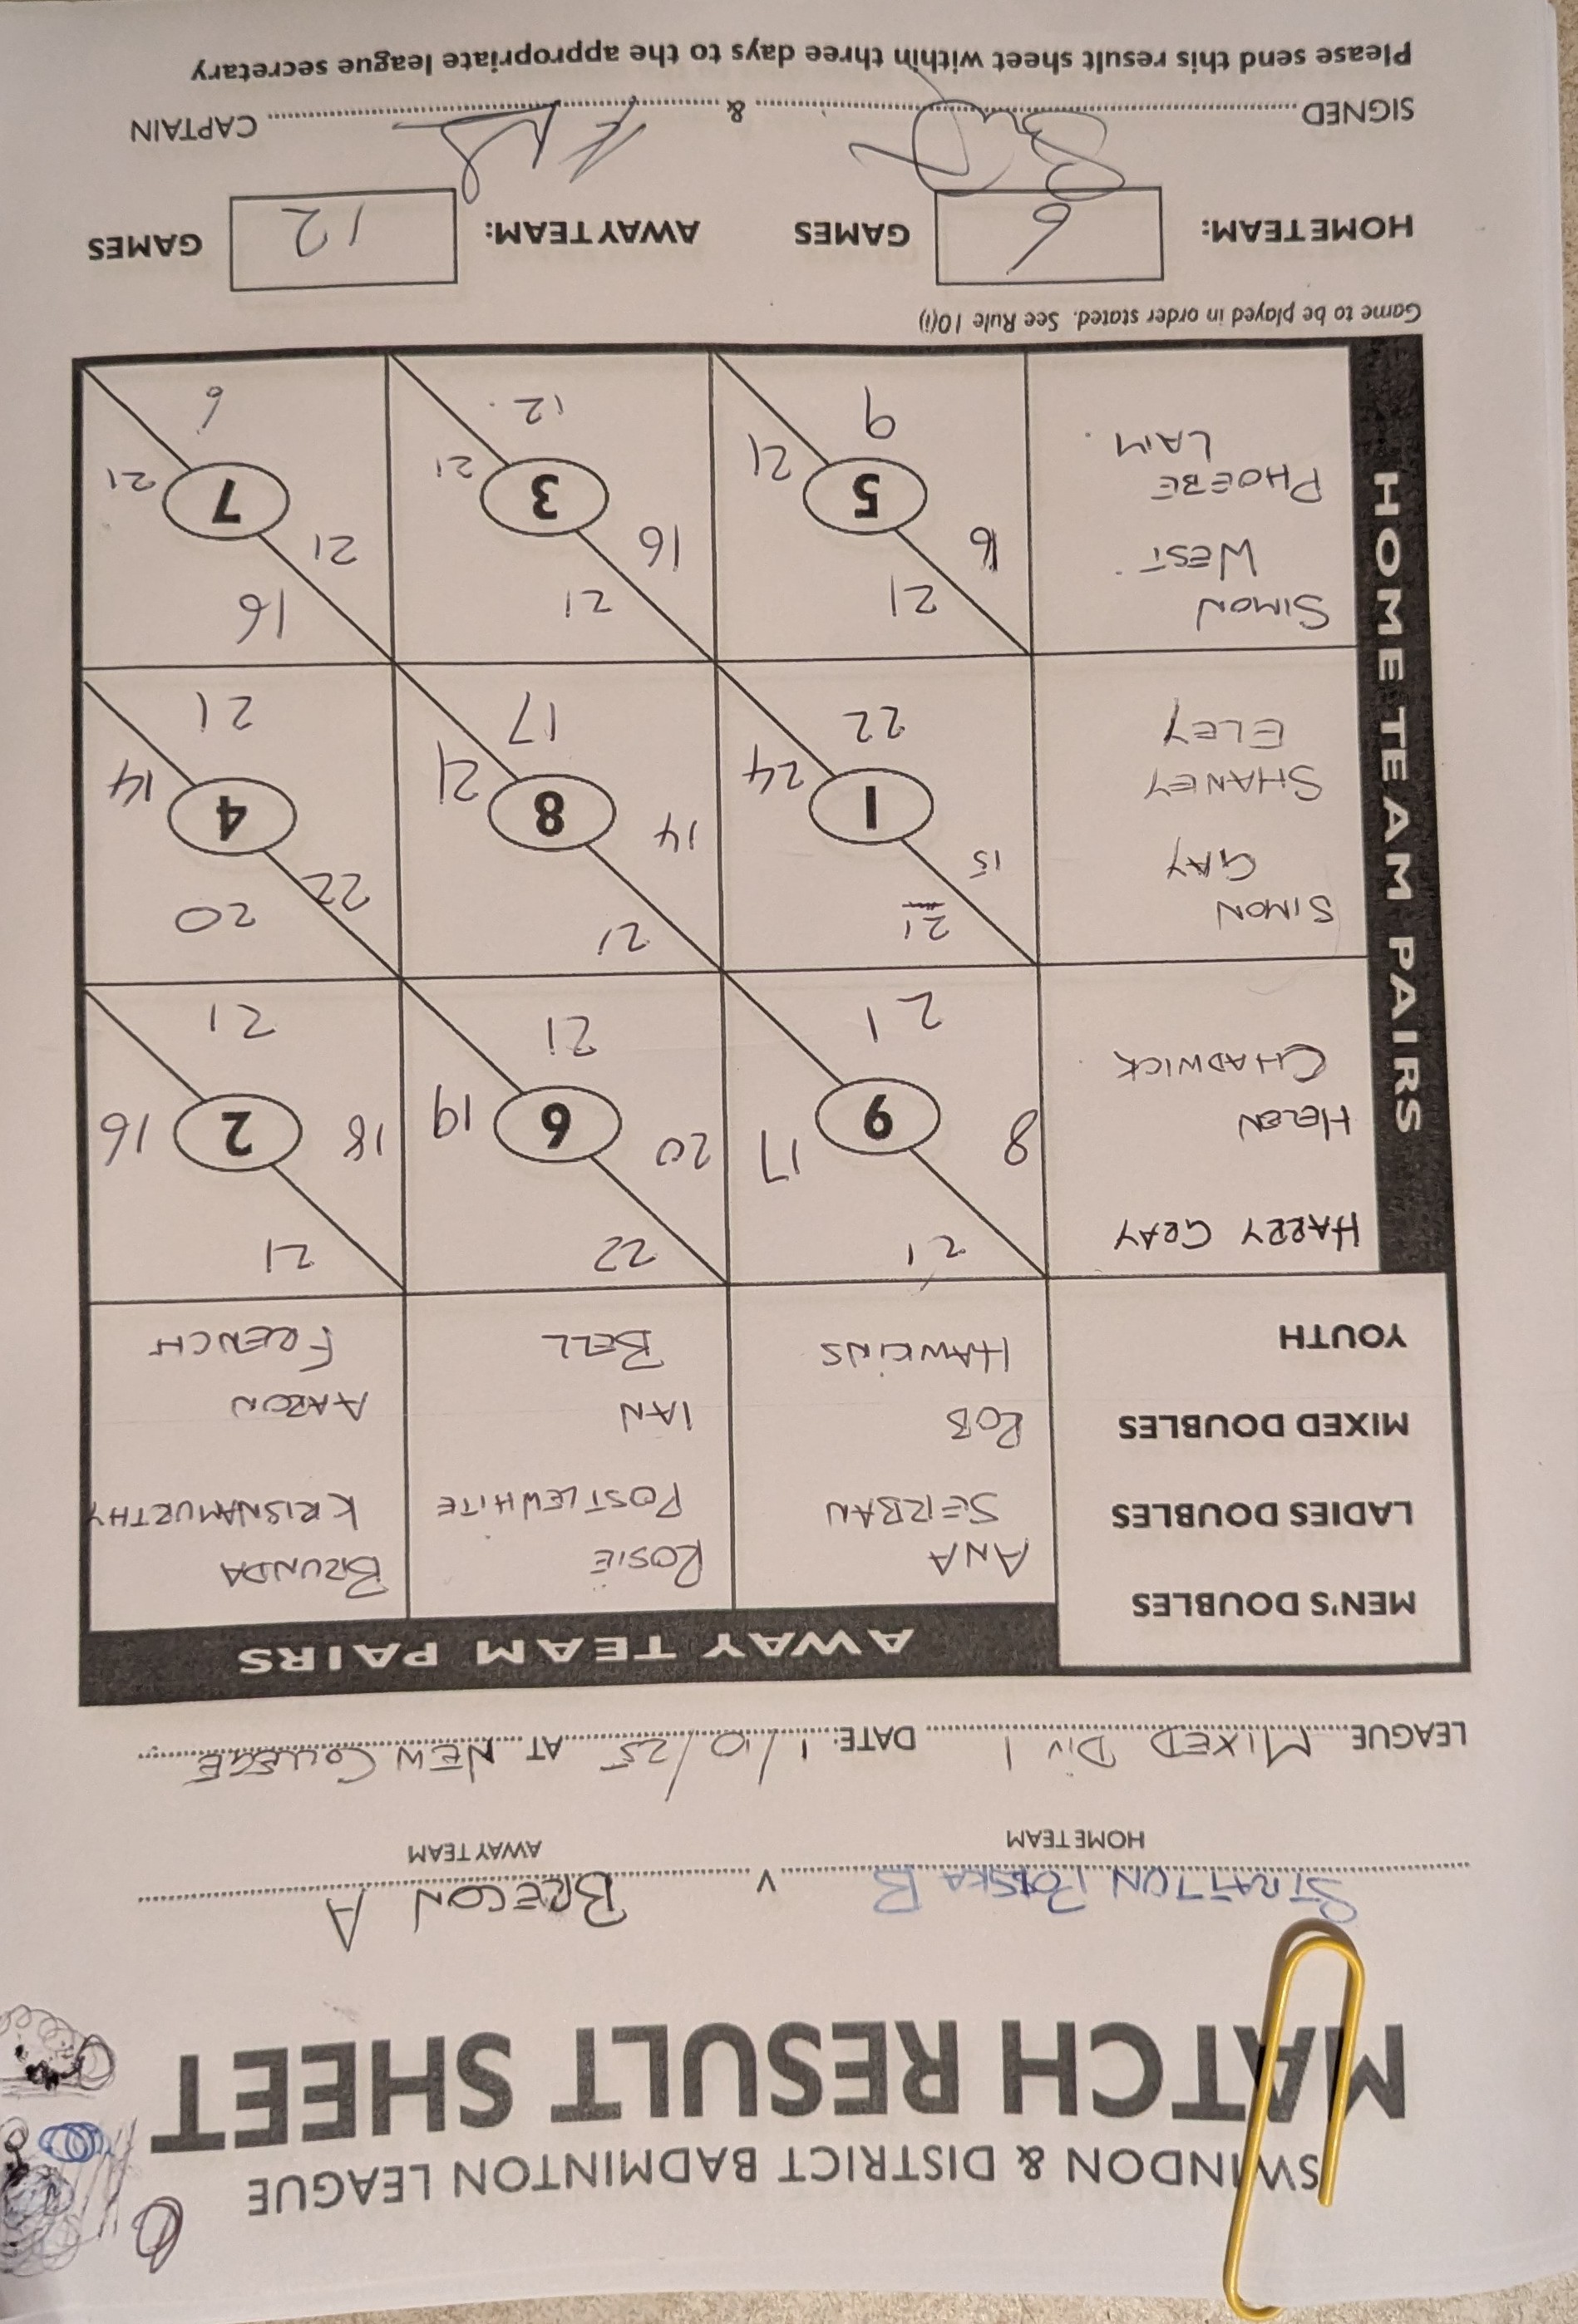 SWINDON & DISTRICT BADMINTON LEAGUE
MATCH RESULT SHEET
STRATTON POLSKA B v BRECON A
HOME TEAM AWAY TEAM
LEAGUE MIXED DIV 1 DATE: 1/10/25 AT NEW COLLEGE
AWAY TEAM PAIRS
MEN'S DOUBLES
LADIES DOUBLES
MIXED DOUBLES
YOUTH
ANA
SERBAN
ROB
HAWKINS
ROSIE
POSTLEWHITE
IAN
BELL
BRUNDA
KRISNAMURTHY
AARON
FRENCH
HOME TEAM PAIRS
HARRY GRAY
HELEN
CHADWICK
21
8 9 17
21
22
20 6 19
21
21
18 2 16
21
SIMON
GAY
SHANEY
ELEY
21
15 1 24
22
21
14 8 21
17
20
22 4 14
21
SIMON
WEST
PHOEBE
LAM
21
16 5 21
9
21
16 3 21
12
16
21 7 21
6
Game to be played in order stated. See Rule 10(i)
HOME TEAM: 6 GAMES AWAY TEAM: 12 GAMES
SIGNED & CAPTAIN
Please send this result sheet within three days to the appropriate league secretary